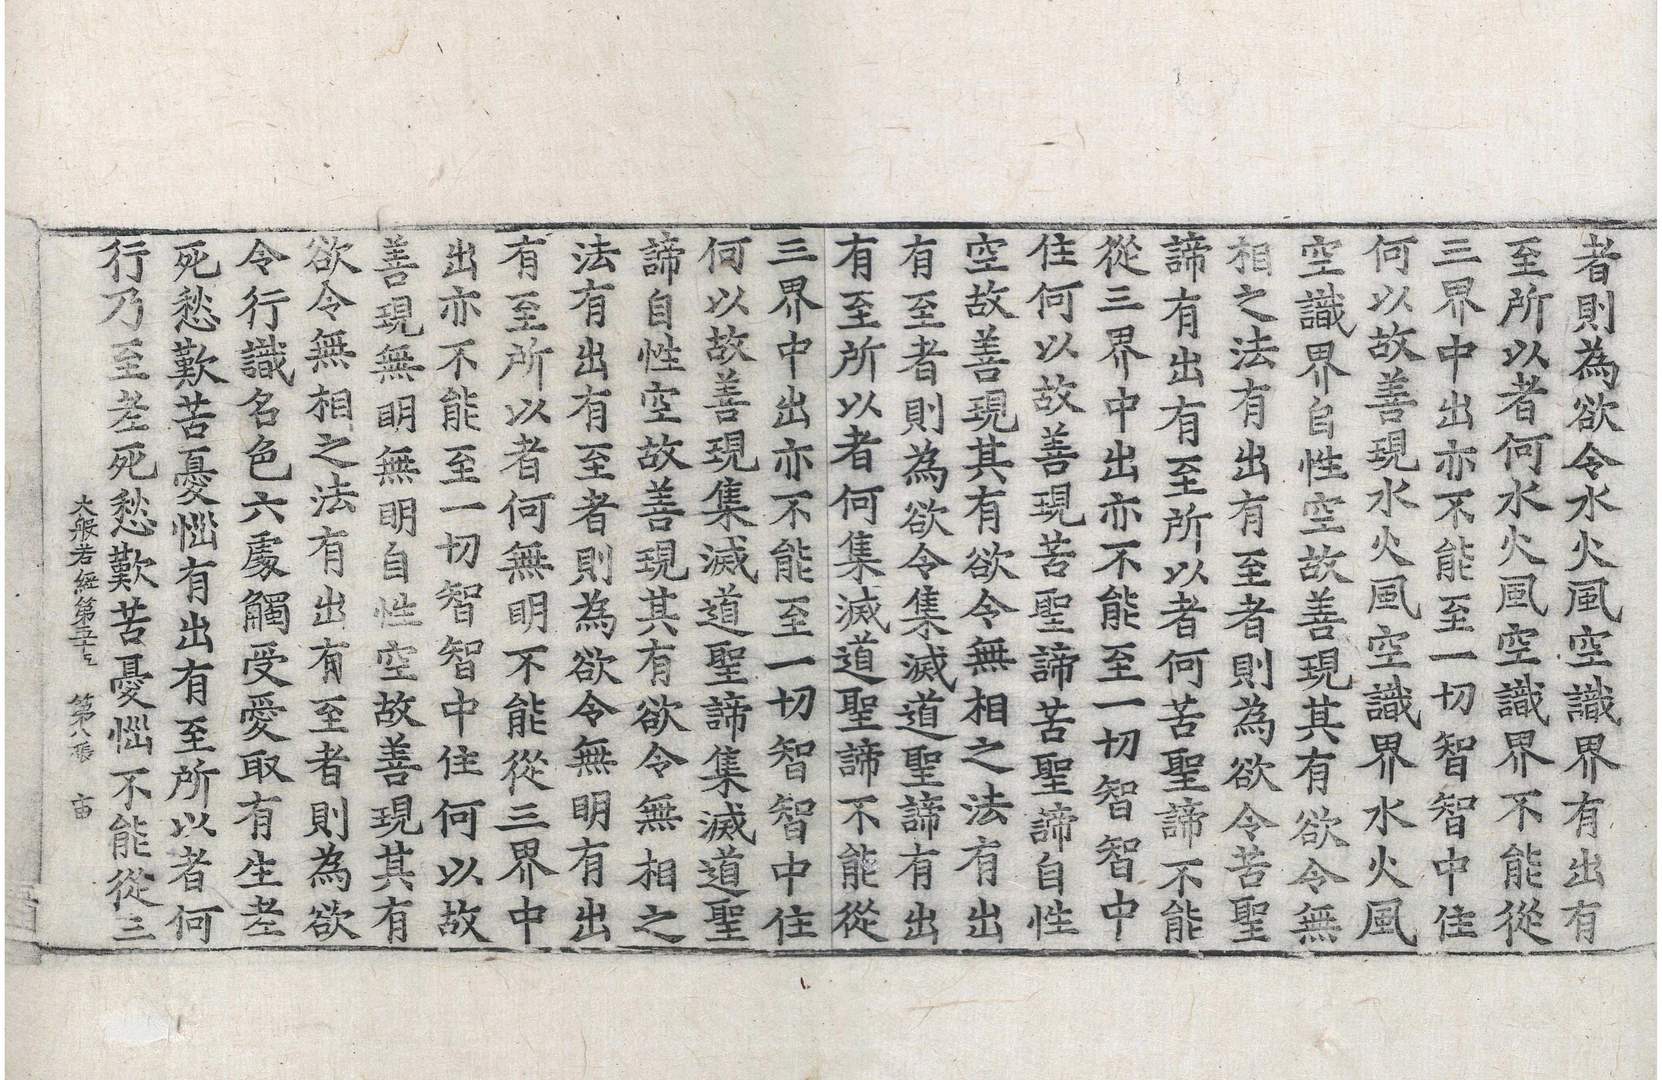 者則為欲令水火風空識界有出有
至所以者何水火風空識界不能從
三界中出亦不能至一切智智中住
何以故善現水火風空識界水火風
空識界自性空故善現其有欲令無
相之法有出有至者則為欲令苦聖
諦有出有至所以者何苦聖諦不能
從三界中出亦不能至一切智智中
住何以故善現苦聖諦苦聖諦自性
空故善現其有欲令無相之法有出
有至者則為欲令集滅道聖諦有出
有至所以者何集滅道聖諦不能從
三界中出亦不能至一切智智中住
何以故善現集滅道聖諦集滅道聖
諦自性空故善現其有欲令無相之
法有出有至者則為欲令無明有出
有至所以者何無明不能從三界中
出亦不能至一切智智中住何以故
善現無明無明自性空故善現其有
欲令無相之法有出有至者則為欲
令行識名色六處觸受愛取有生老
死愁歎苦憂惱有出有至所以者何
行乃至老死愁歎苦憂惱不能從三
大般若經第五十五 第八張 宙